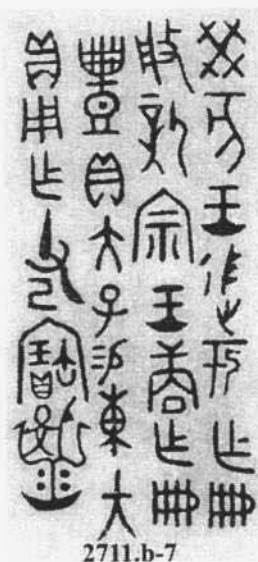 癸亥王于乍冊
般新宗王商乍冊
豐貝大子易東大
貝用乍父己寶
2711.b-7